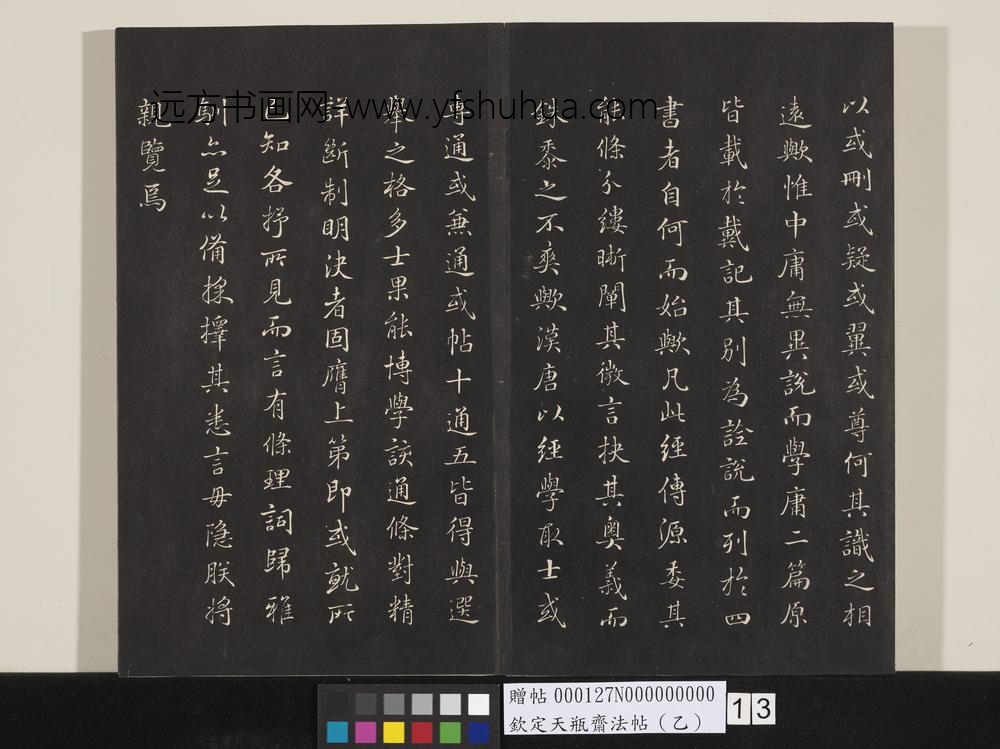 以或刪或疑或翼或尊何其識之相
遠歟惟中庸無異說而學庸二篇原
皆載於戴記其別為詮說而列於四
書者自何而始歟凡此經傳源委其
能條分縷晰闡其微言抉其奧義而
銖黍之不爽歟漢唐以經學取士或
專通或兼通或帖十通五皆得與選
舉之格多士果能博學該通條對精
詳斷制明決者固膺上第即或就所
已知各抒所見而言有條理詞歸雅
馴亦足以備採擇其悉言毋隱朕將
親覽焉
远方书画网 www.yfshuhua.com
贈帖 000127N000000000
欽定天瓶齋法帖（乙）
13